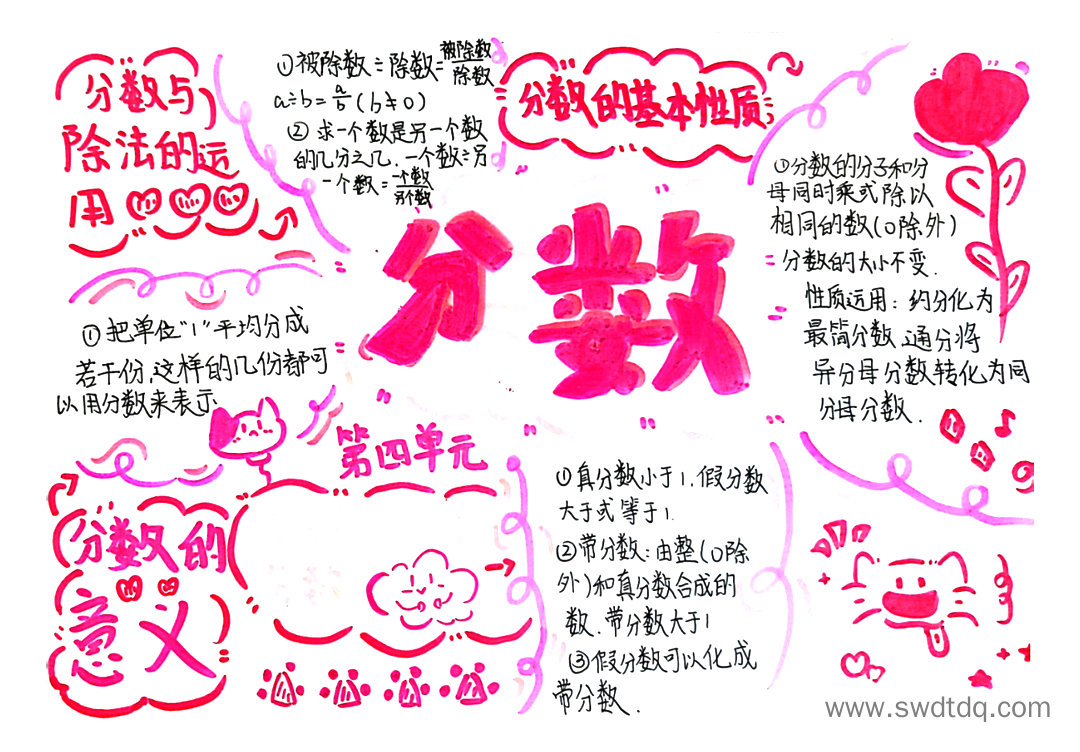 分数与
除法的运
用
①被除数÷除数=被除数/除数
a÷b=a/b(b≠0)
②求一个数是另一个数
的几分之几.一个数÷另
一个数=一个数/另个数
分数的基本性质
①分数的分子和分
母同时乘或除以
相同的数(0除外)
分数的大小不变.
性质运用:约分化为
最简分数.通分将
异分母分数转化为同
分母分数.
分数
①把单位"1"平均分成
若干份,这样的几份都可
以用分数来表示
第四单元
分数的
意义
①真分数小于1.假分数
大于或等于1.
②带分数:由整(0除
外)和真分数合成的
数.带分数大于1
③假分数可以化成
带分数.
www.swdtdq.com